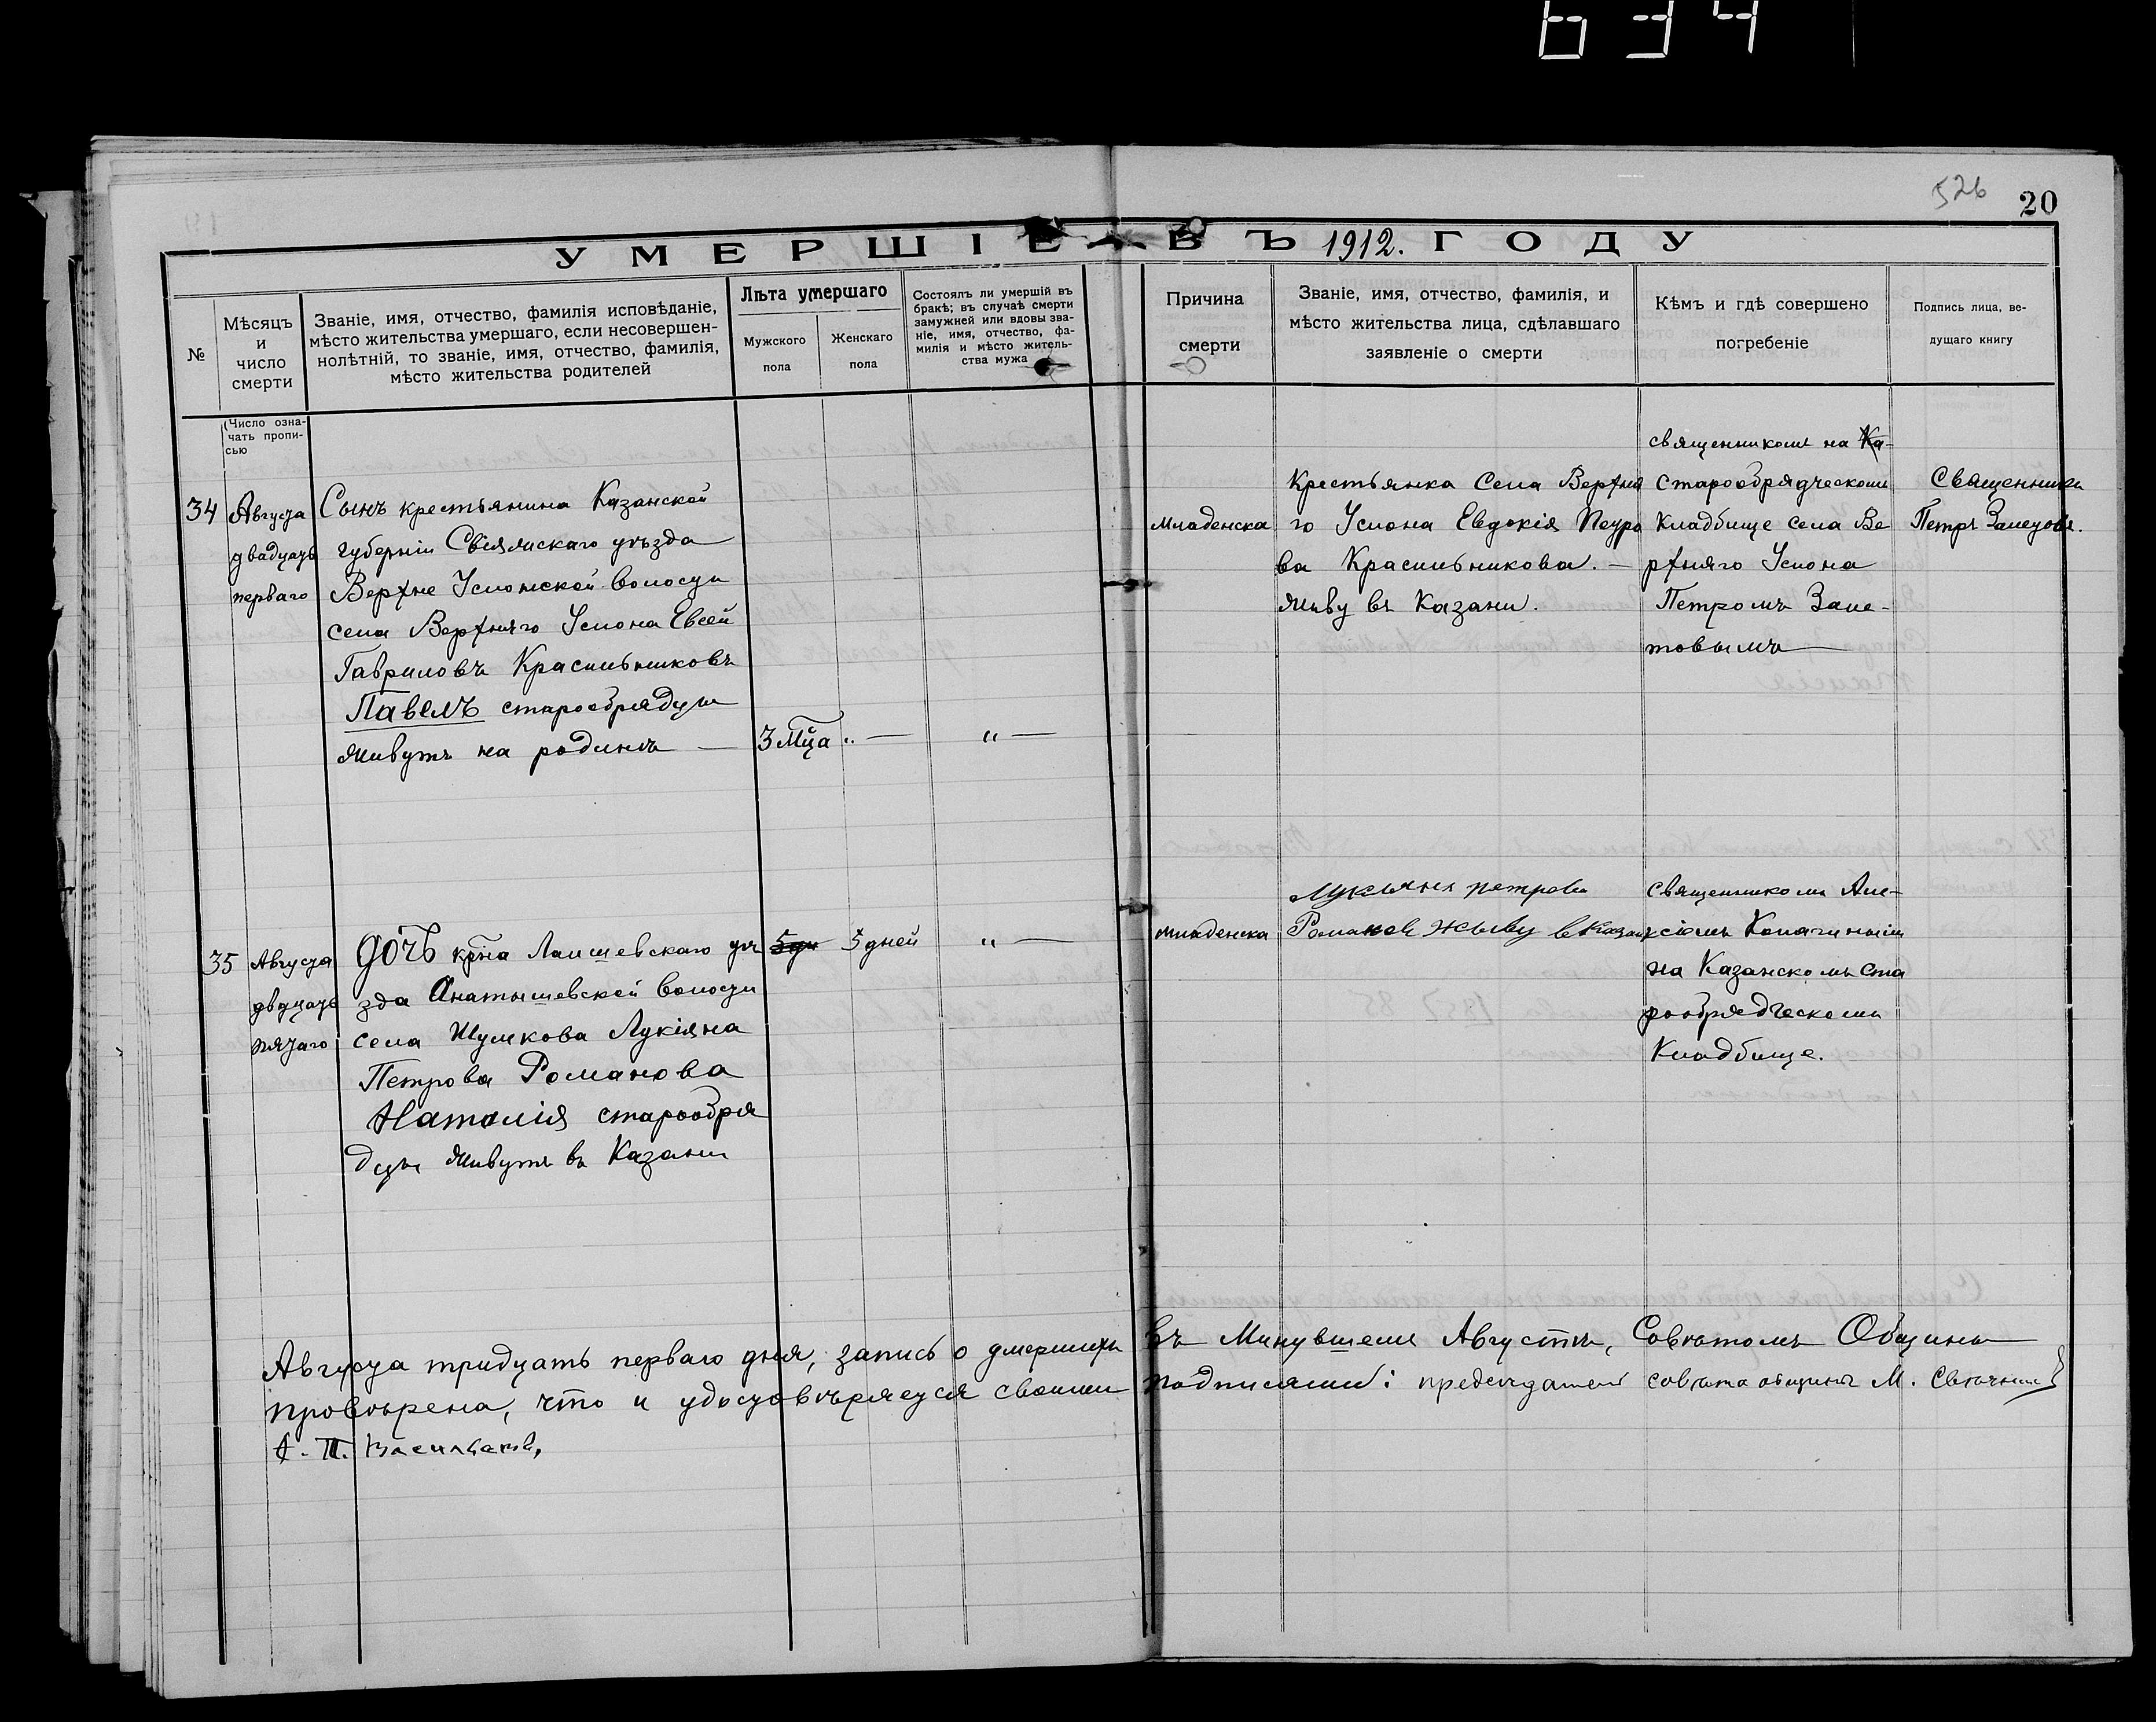 634
526
20
УМЕРШІЕ ВЪ 1912. ГОДУ
№
Мѣсяцъ
и
число
смерти
Званіе, имя, отчество, фамилія исповѣданіе,
мѣсто жительства умершаго, если несовершен-
нолѣтній, то званіе, имя, отчество, фамилія,
мѣсто жительства родителей
Лѣта умершаго
Мужского
пола
Женскаго
пола
Состоялъ ли умершій въ
бракѣ; въ случаѣ смерти
замужней или вдовы зва-
ніе, имя, отчество, фа-
милія и мѣсто житель-
ства мужа
Причина
смерти
Званіе, имя, отчество, фамилія, и
мѣсто жительства лица, сдѣлавшаго
заявленіе о смерти
Кѣмъ и гдѣ совершено
погребеніе
Подпись лица, ве-
дущаго книгу
(Число озна-
чать пропи-
сью
34
Августа
двадцать
перваго
Сынъ крестьянина Казанской
губерніи Свіяжскаго уѣзда
Верхне Услонской волости
села Верхняго Услона Евсей
Гавриловъ Красильниковъ
Павелъ старообрядцы
живутъ на родинѣ —
3 мца
„ —
„ —
Младенска
Крестьянка Села Верхня
го Услона Евдокія Петро
ва Красильникова. —
живу въ Казани.
священникомъ на Ка-
старообрядческомъ
кладбище села Ве
рхняго Услона
Петромъ Зале-
товымъ
Священникъ
Петръ Залетовъ.
35
Августа
двдцать
пятаго
Дочь крна Лаишевскаго уѣ
зда Анатышевской волости
села Шумкова Лукіяна
Петрова Романова
Наталія старообря
дцы живутъ въ Казани
5 дн
5 дней
„ —
младенска
Лукьянъ петровъ
Романовъ жыву вКазан
священникомъ Але-
ксіемъ Калагинымъ
на Казанскомъ ста
рообрядческомъ
Кладбище.
Августа тридцать перваго дня, запись о умершихъ въ Минувшемъ Августѣ, Совѣтомъ Общины
провѣрена, что и удостовѣряется своими подписями: председатель совѣта общины М. Свѣчник
А. П. Васильевъ,